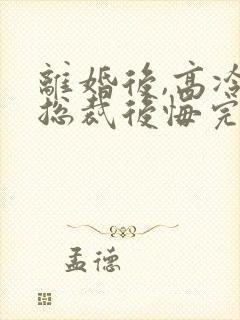 離婚後,高冷
總裁後悔完
孟德